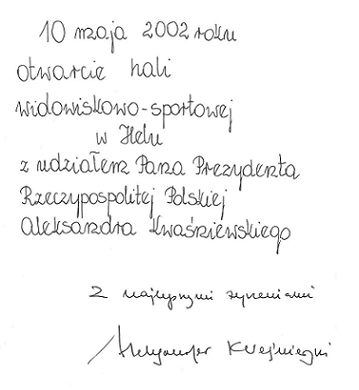 10 maja 2002 roku
otwarcie hali
widowiskowo-sportowej
w Helu
z udziałem Pana Prezydenta
Rzeczypospolitej Polskiej
Aleksandra Kwaśniewskiego
Z najlepszymi życzeniami
Aleksander Kwaśniewski